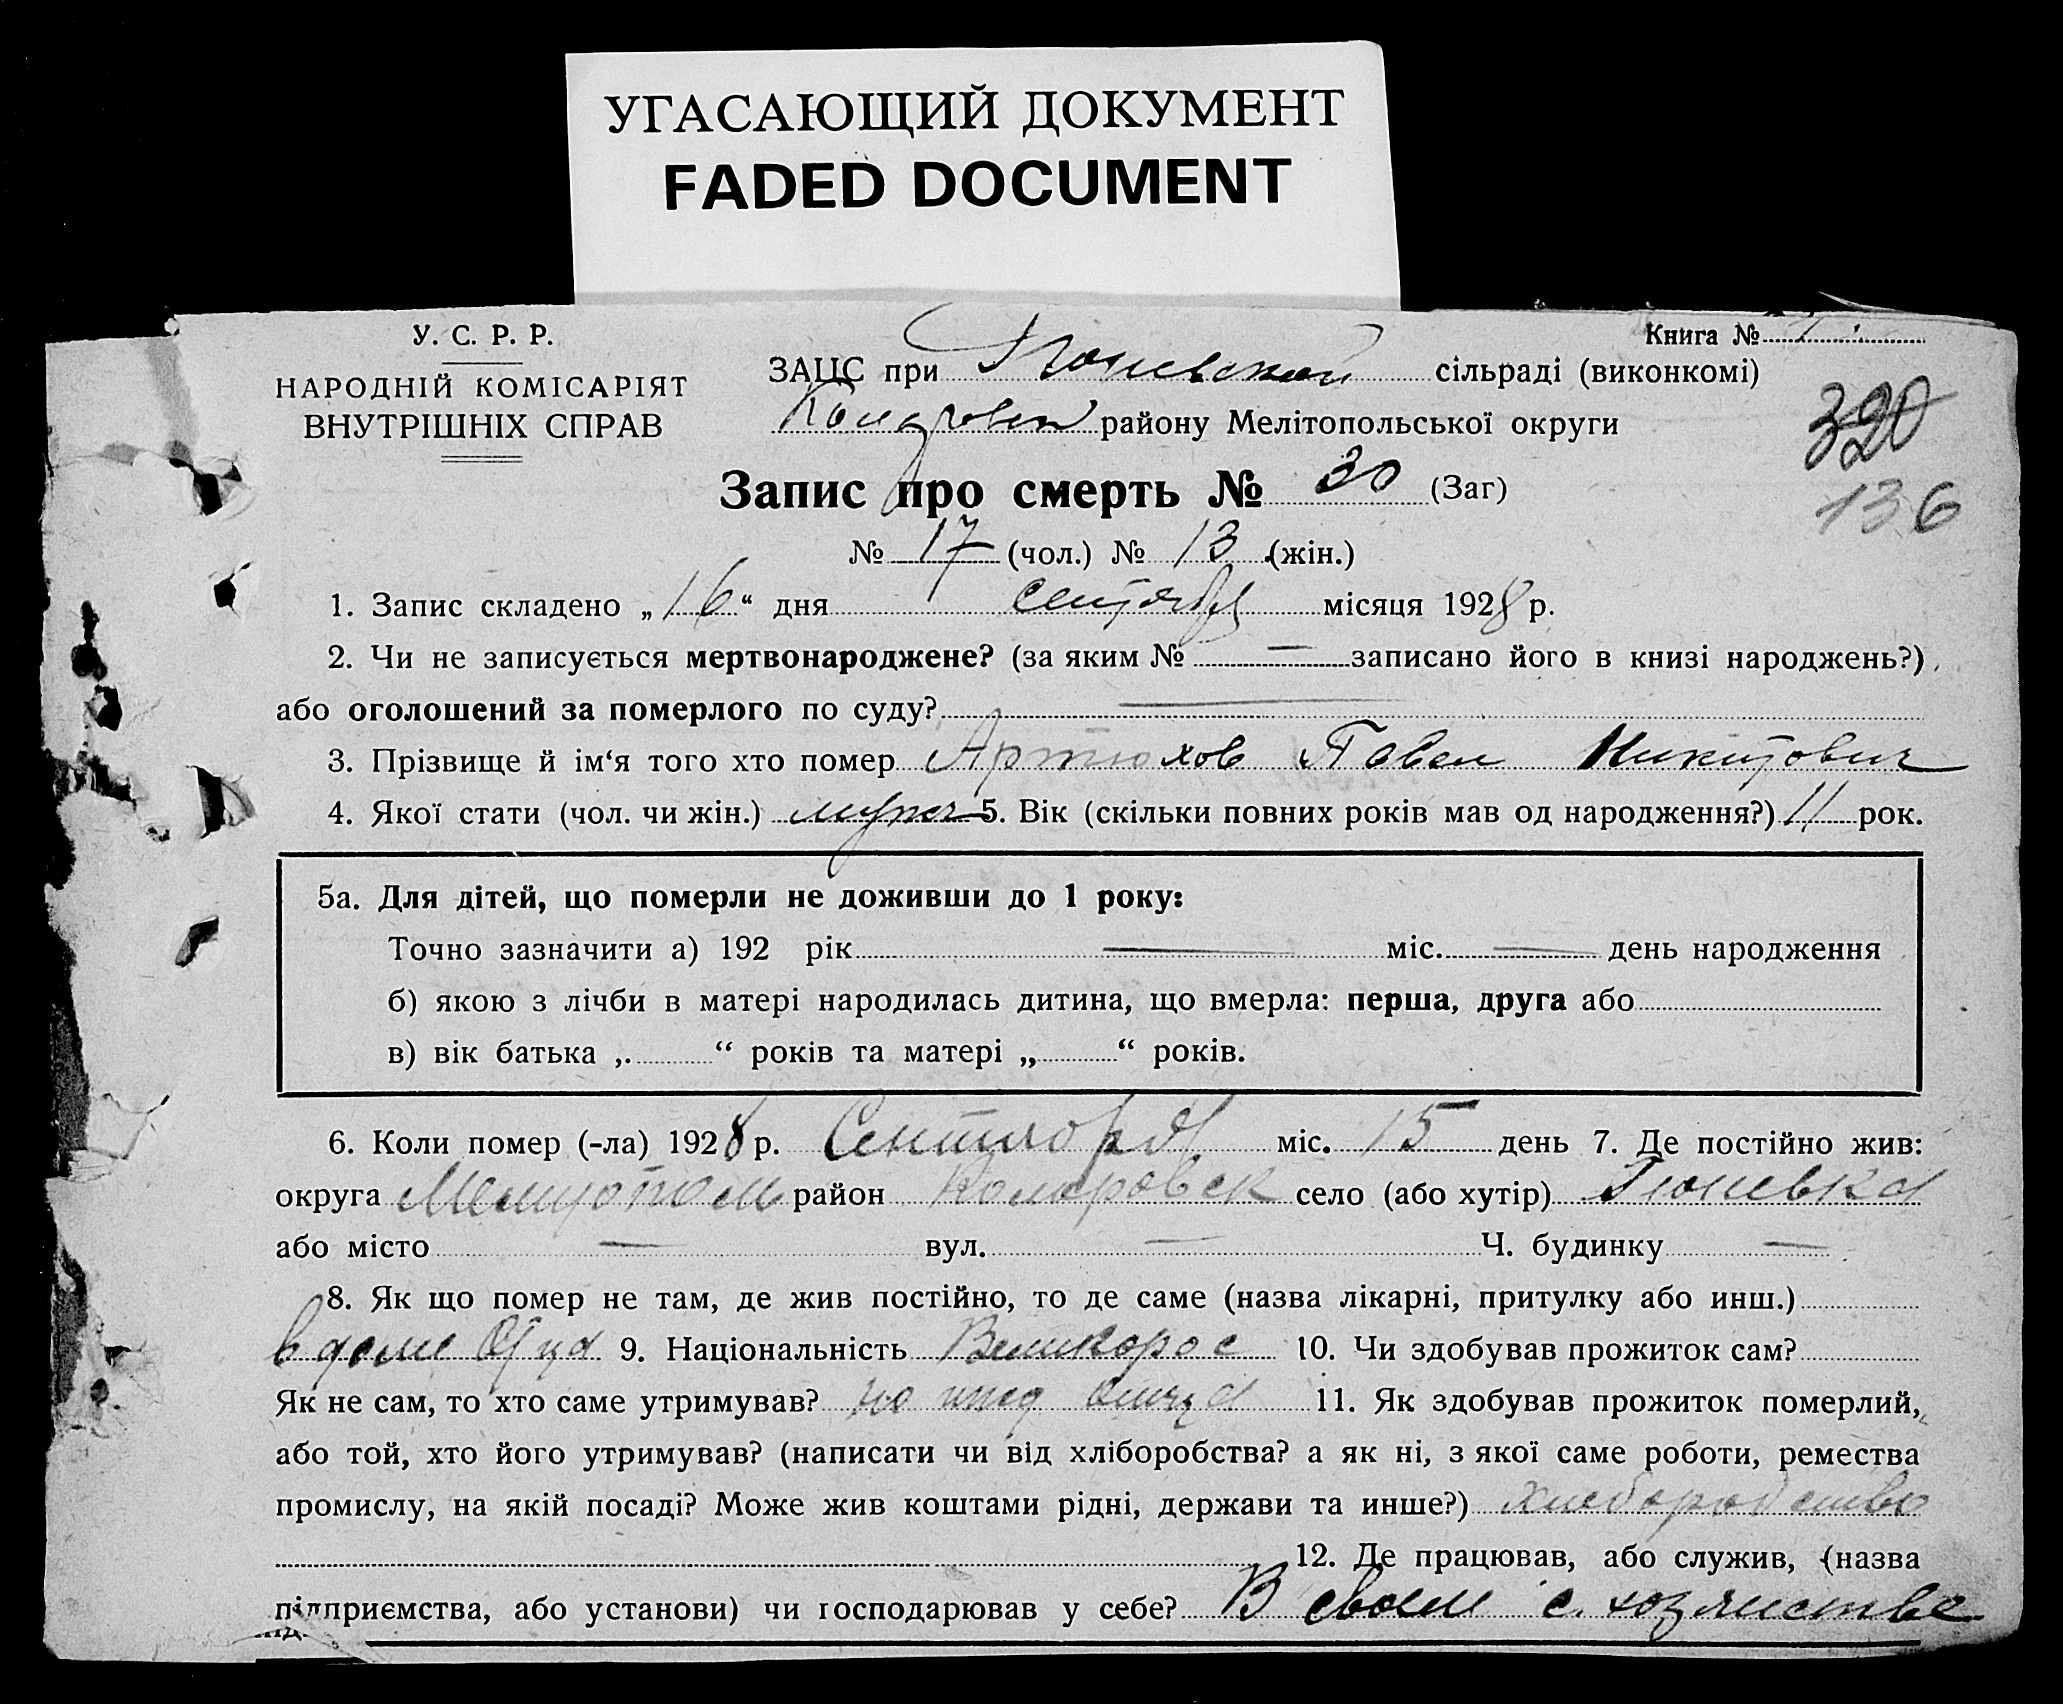 УГАСАЮЩИЙ ДОКУМЕНТ
FADED DOCUMENT
У. С. Р. Р.
НАРОДНІЙ КОМІСАРІЯТ
ВНУТРІШНІХ СПРАВ
Книга №
ЗАЦС при Гюневской сільраді (виконкомі)
району Мелітопольської округи
320
136
Запис про смерть № 30 (Заг)
№ 17 (чол.) № 13 (жін.)
1. Запис складено „16“ дня сентября місяця 1928 р.
2. Чи не записується мертвонароджене? (за яким № — записано його в книзі народжень?)
або оголошений за померлого по суду? —
3. Прізвище й ім‘я того хто помер Артюхов Павел Никитович
4. Якої стати (чол. чи жін.) мужск 5. Вік (скільки повних років мав од народження?) 11 рок.
5а. Для дітей, що померли не доживши до 1 року:
Точно зазначити а) 192 рік — міс. — день народження
б) якою з лічби в матері народилась дитина, що вмерла: перша, друга або
в) вік батька „ “ років та матері „ “ років.
6. Коли помер (-ла) 1928 р. Сентября міс. 15 день 7. Де постійно жив:
округа Мелитополь район село (або хутір) Гюневка
або місто — вул. — Ч. будинку —
8. Як що помер не там, де жив постійно, то де саме (назва лікарні, притулку або инш.)
в доме Отца 9. Національність Великорос 10. Чи здобував прожиток сам?
Як не сам, то хто саме утримував? Отца 11. Як здобував прожиток померлий,
або той, хто його утримував? (написати чи від хліборобства? а як ні, з якої саме роботи, ремества
промислу, на якій посаді? Може жив коштами рідні, держави та инше?)
12. Де працював, або служив, (назва
підприємства, або установи) чи господарював у себе? В своем с. хозяистве